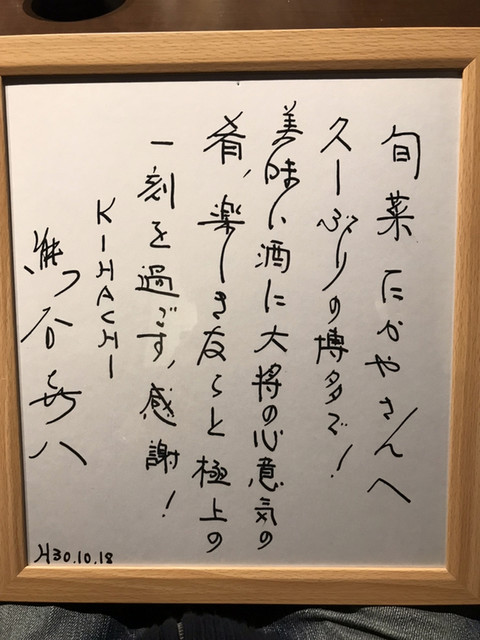 旬菜 たかやさんへ
久しぶりの博多で!
美味い酒に大将の心意気の
肴、楽しき友らと極上の
一刻を過ごす、感謝!
KIHACHI
熊谷喜八
H30.10.18